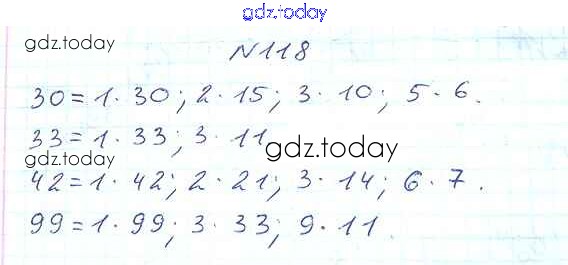 gdz.today
gdz.today
N118
30 = 1 · 30; 2 · 15; 3 · 10; 5 · 6.
33 = 1 · 33; 3 · 11
gdz.today
gdz.today
42 = 1 · 42; 2 · 21; 3 · 14; 6 · 7.
99 = 1 · 99; 3 · 33; 9 · 11.